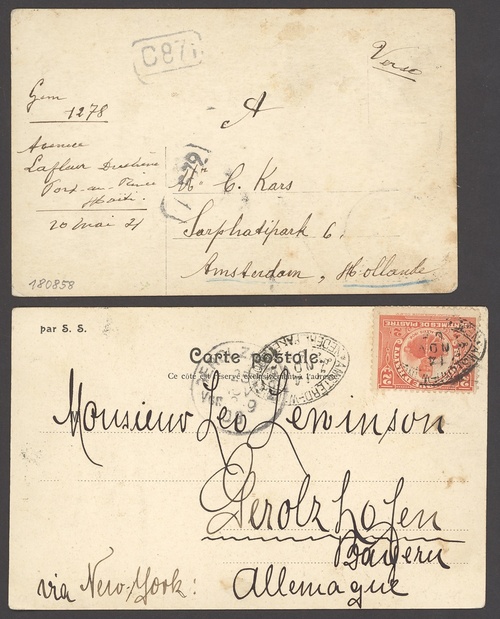 C871
Verso
Gem
1278
A
Avenue
Lafleur Duchêne
Port-au-Prince
Haïti.
20 Mai 21
C. Kars
Sarphatipark 6.
Amsterdam, Hollande
180858
par S. S.
Carte postale.
Ce côté est réservé exclusivement à l'adresse.
CENTIMES DE PIASTRE
2
Monsieur Leo Lewinson
Gerolzhofen
Bayern
via New-York: Allemagne